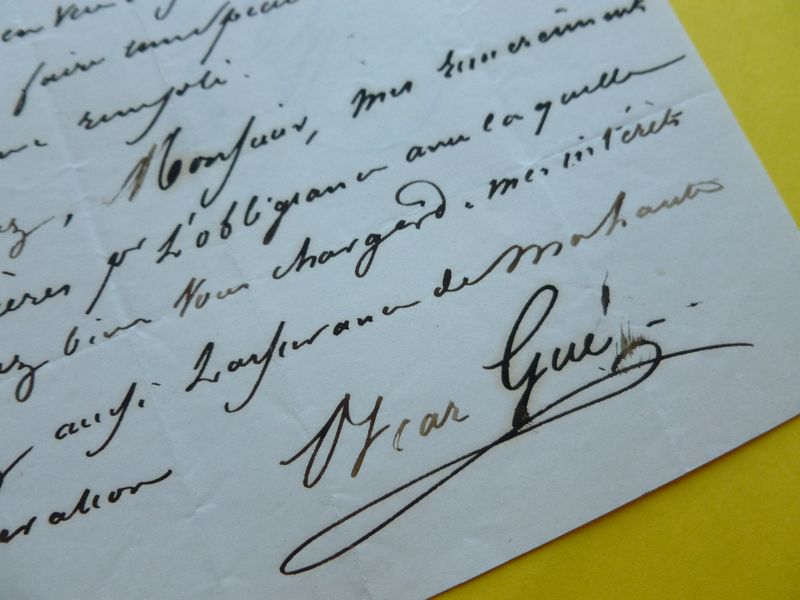 faire
rempli.
, Monsieur, mes remerciements
ères pr l'obligeance avec laquelle
ez bien vous charger de mes intérêts
aussi l'assurance de ma haute
ération
Oscar Gué